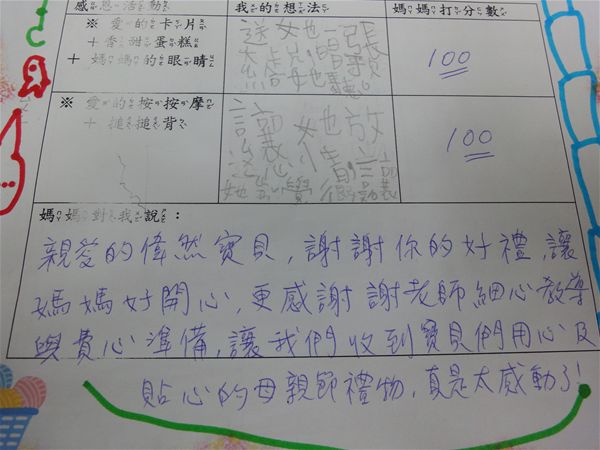 感恩活動 我的想法 媽媽打分數
※ 愛的卡片
+ 香甜蛋糕
+ 媽媽的眼睛
送她一張
100
※ 愛的按按摩
+ 搥搥背
讓她放
100
媽媽對我說：
親愛的偉然寶貝，謝謝你的好禮，讓
媽媽好開心，更感謝謝老師細心教導
與費心準備，讓我們收到寶貝們用心及
貼心的母親節禮物，真是太感動了！